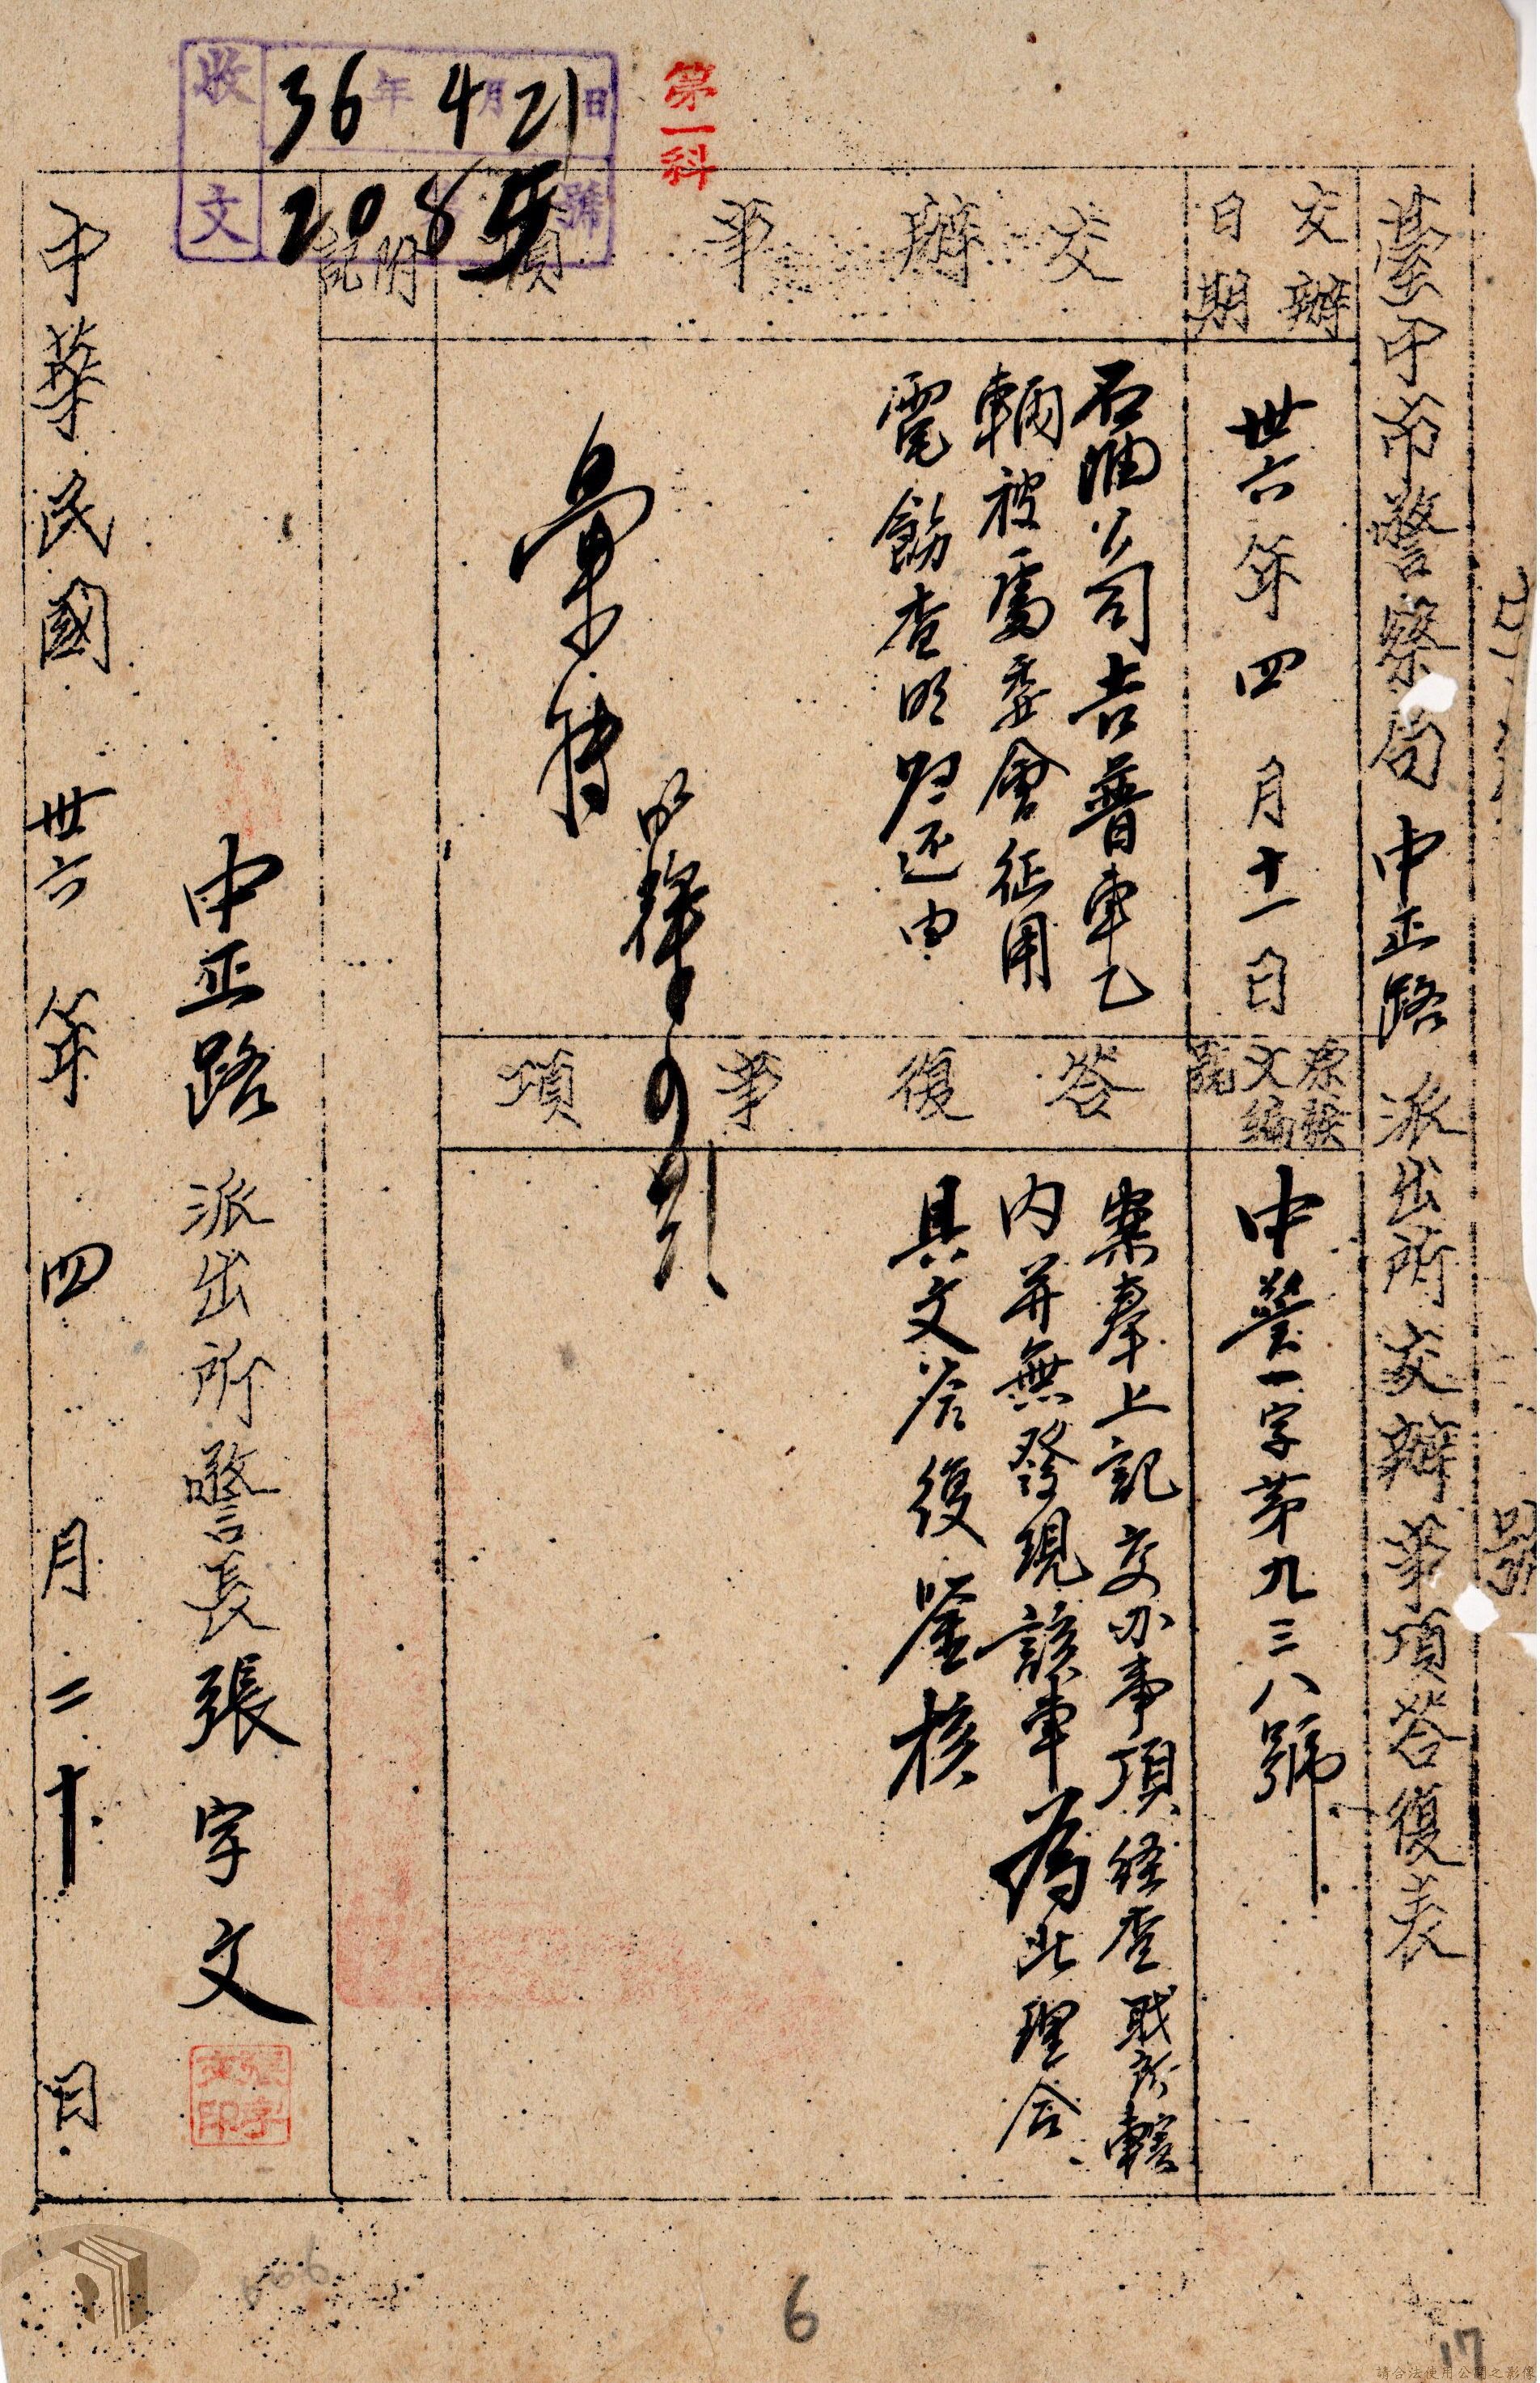 臺中市警察局中正路派出所交辦事項答復表
交辦日期
卅六年四月十一日
原發文編號
中警一字第九三八號
交辦事項
石油公司吉普車乙
輛被處委會征用
電飭查明歸還由
答復事項
案奉上記交办事項経查戝所轄
内并無發現該車為此理合
具文答復鉴核
彙轉
附記
中正路派出所警長張字文
張字文印
中華民國卅六年四月二十日
第一科
收文
36年4月21日
2085號
號
6
17
請合法使用公開之影像